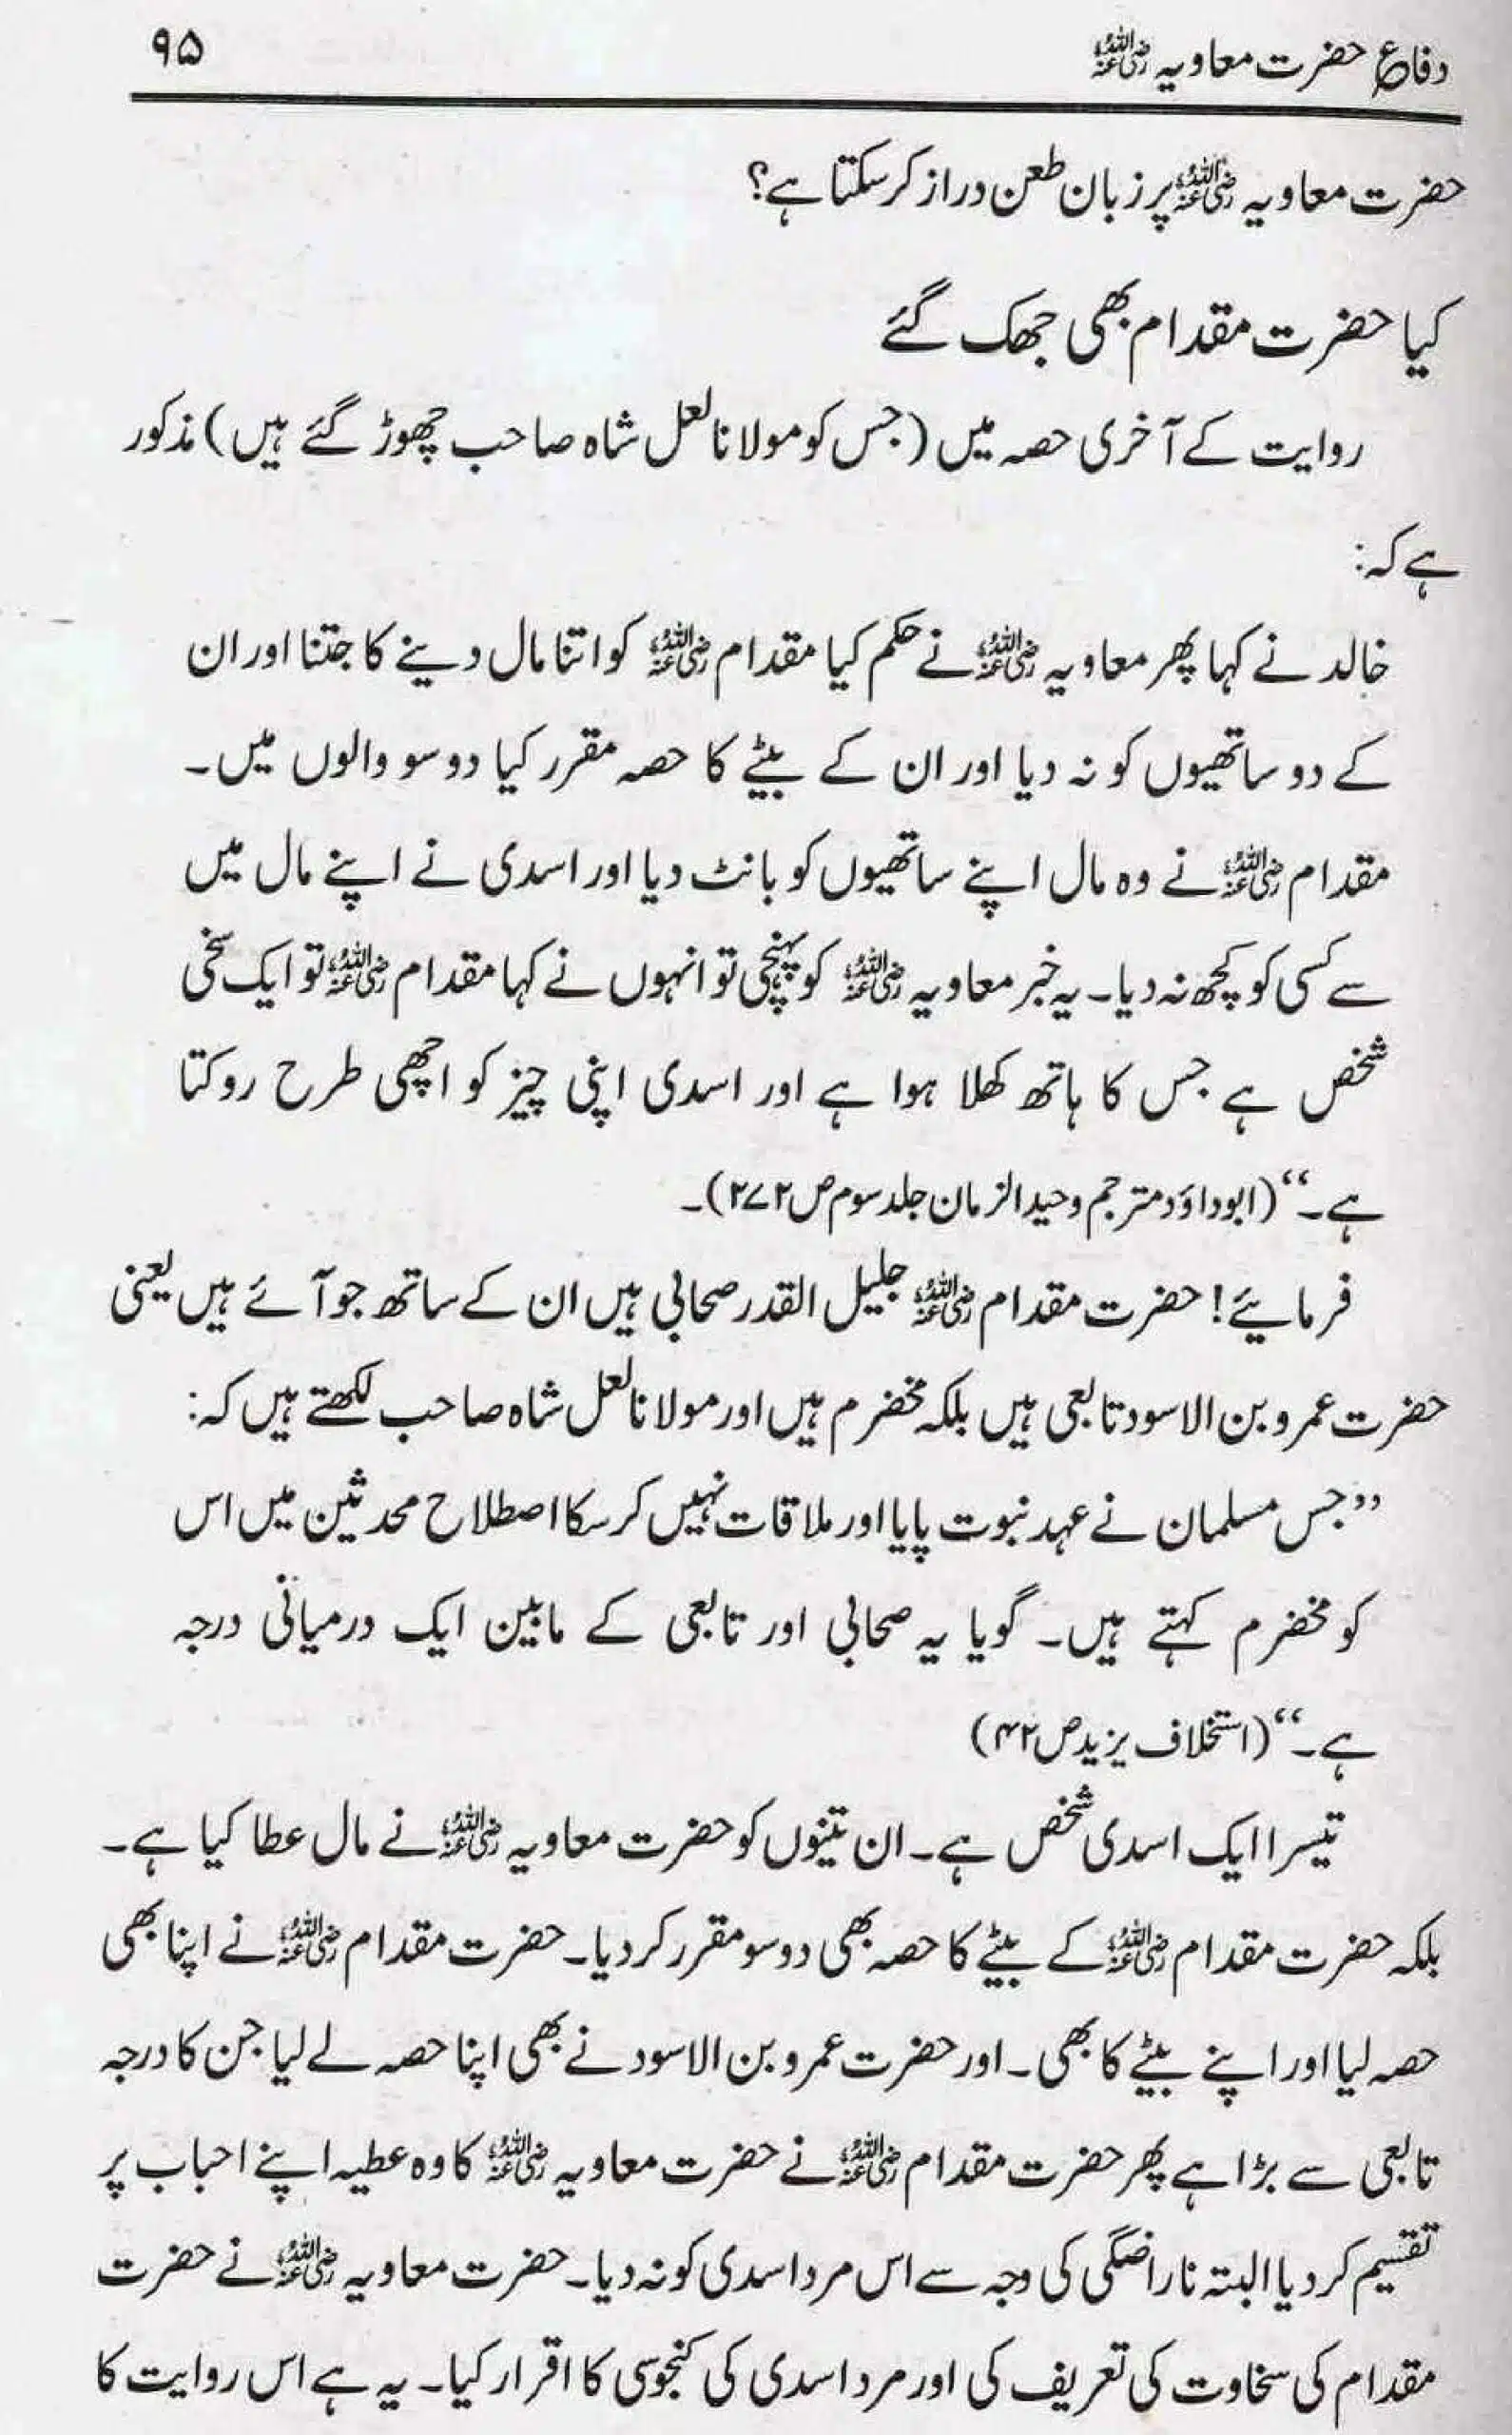 دفاع حضرت معاویہ رضی اللہ عنہ ۹۵
حضرت معاویہ رضی اللہ عنہ پر زبان طعن دراز کر سکتا ہے؟
کیا حضرت مقدام بھی جھک گئے
روایت کے آخری حصہ میں (جس کو مولانا لعل شاہ صاحب چھوڑ گئے ہیں) مذکور
ہے کہ:
خالد نے کہا پھر معاویہ رضی اللہ عنہ نے حکم کیا مقدام رضی اللہ عنہ کو اتنا مال دینے کا جتنا اور ان
کے دو ساتھیوں کو نہ دیا اور ان کے بیٹے کا حصہ مقرر کیا دو سو والوں میں۔
مقدام رضی اللہ عنہ نے وہ مال اپنے ساتھیوں کو بانٹ دیا اور اسدی نے اپنے مال میں
سے کسی کو کچھ نہ دیا۔ یہ خبر معاویہ رضی اللہ عنہ کو پہنچی تو انہوں نے کہا مقدام رضی اللہ عنہ تو ایک سخی
شخص ہے جس کا ہاتھ کھلا ہوا ہے اور اسدی اپنی چیز کو اچھی طرح روکتا
ہے۔‘‘ (ابوداؤد مترجم وحید الزمان جلد سوم ص ۲۷۲)۔
فرمایئے! حضرت مقدام رضی اللہ عنہ جلیل القدر صحابی ہیں ان کے ساتھ جو آئے ہیں یعنی
حضرت عمرو بن الاسود تابعی ہیں بلکہ مخضرم ہیں اور مولانا لعل شاہ صاحب لکھتے ہیں کہ:
’’جس مسلمان نے عہد نبوت پایا اور ملاقات نہیں کر سکا اصطلاح محدثین میں اس
کو مخضرم کہتے ہیں۔ گویا یہ صحابی اور تابعی کے مابین ایک درمیانی درجہ
ہے۔‘‘ (استخلاف یزید ص ۴۲)
تیسرا ایک اسدی شخص ہے۔ ان تینوں کو حضرت معاویہ رضی اللہ عنہ نے مال عطا کیا ہے۔
بلکہ حضرت مقدام رضی اللہ عنہ کے بیٹے کا حصہ بھی دو سو مقرر کر دیا۔ حضرت مقدام رضی اللہ عنہ نے اپنا بھی
حصہ لیا اور اپنے بیٹے کا بھی۔ اور حضرت عمرو بن الاسود نے بھی اپنا حصہ لے لیا جن کا درجہ
تابعی سے بڑا ہے پھر حضرت مقدام رضی اللہ عنہ نے حضرت معاویہ رضی اللہ عنہ کا وہ عطیہ اپنے احباب پر
تقسیم کر دیا البتہ ناراضگی کی وجہ سے اس مرد اسدی کو نہ دیا۔ حضرت معاویہ رضی اللہ عنہ نے حضرت
مقدام کی سخاوت کی تعریف کی اور مرد اسدی کی کنجوسی کا اقرار کیا۔ یہ ہے اس روایت کا